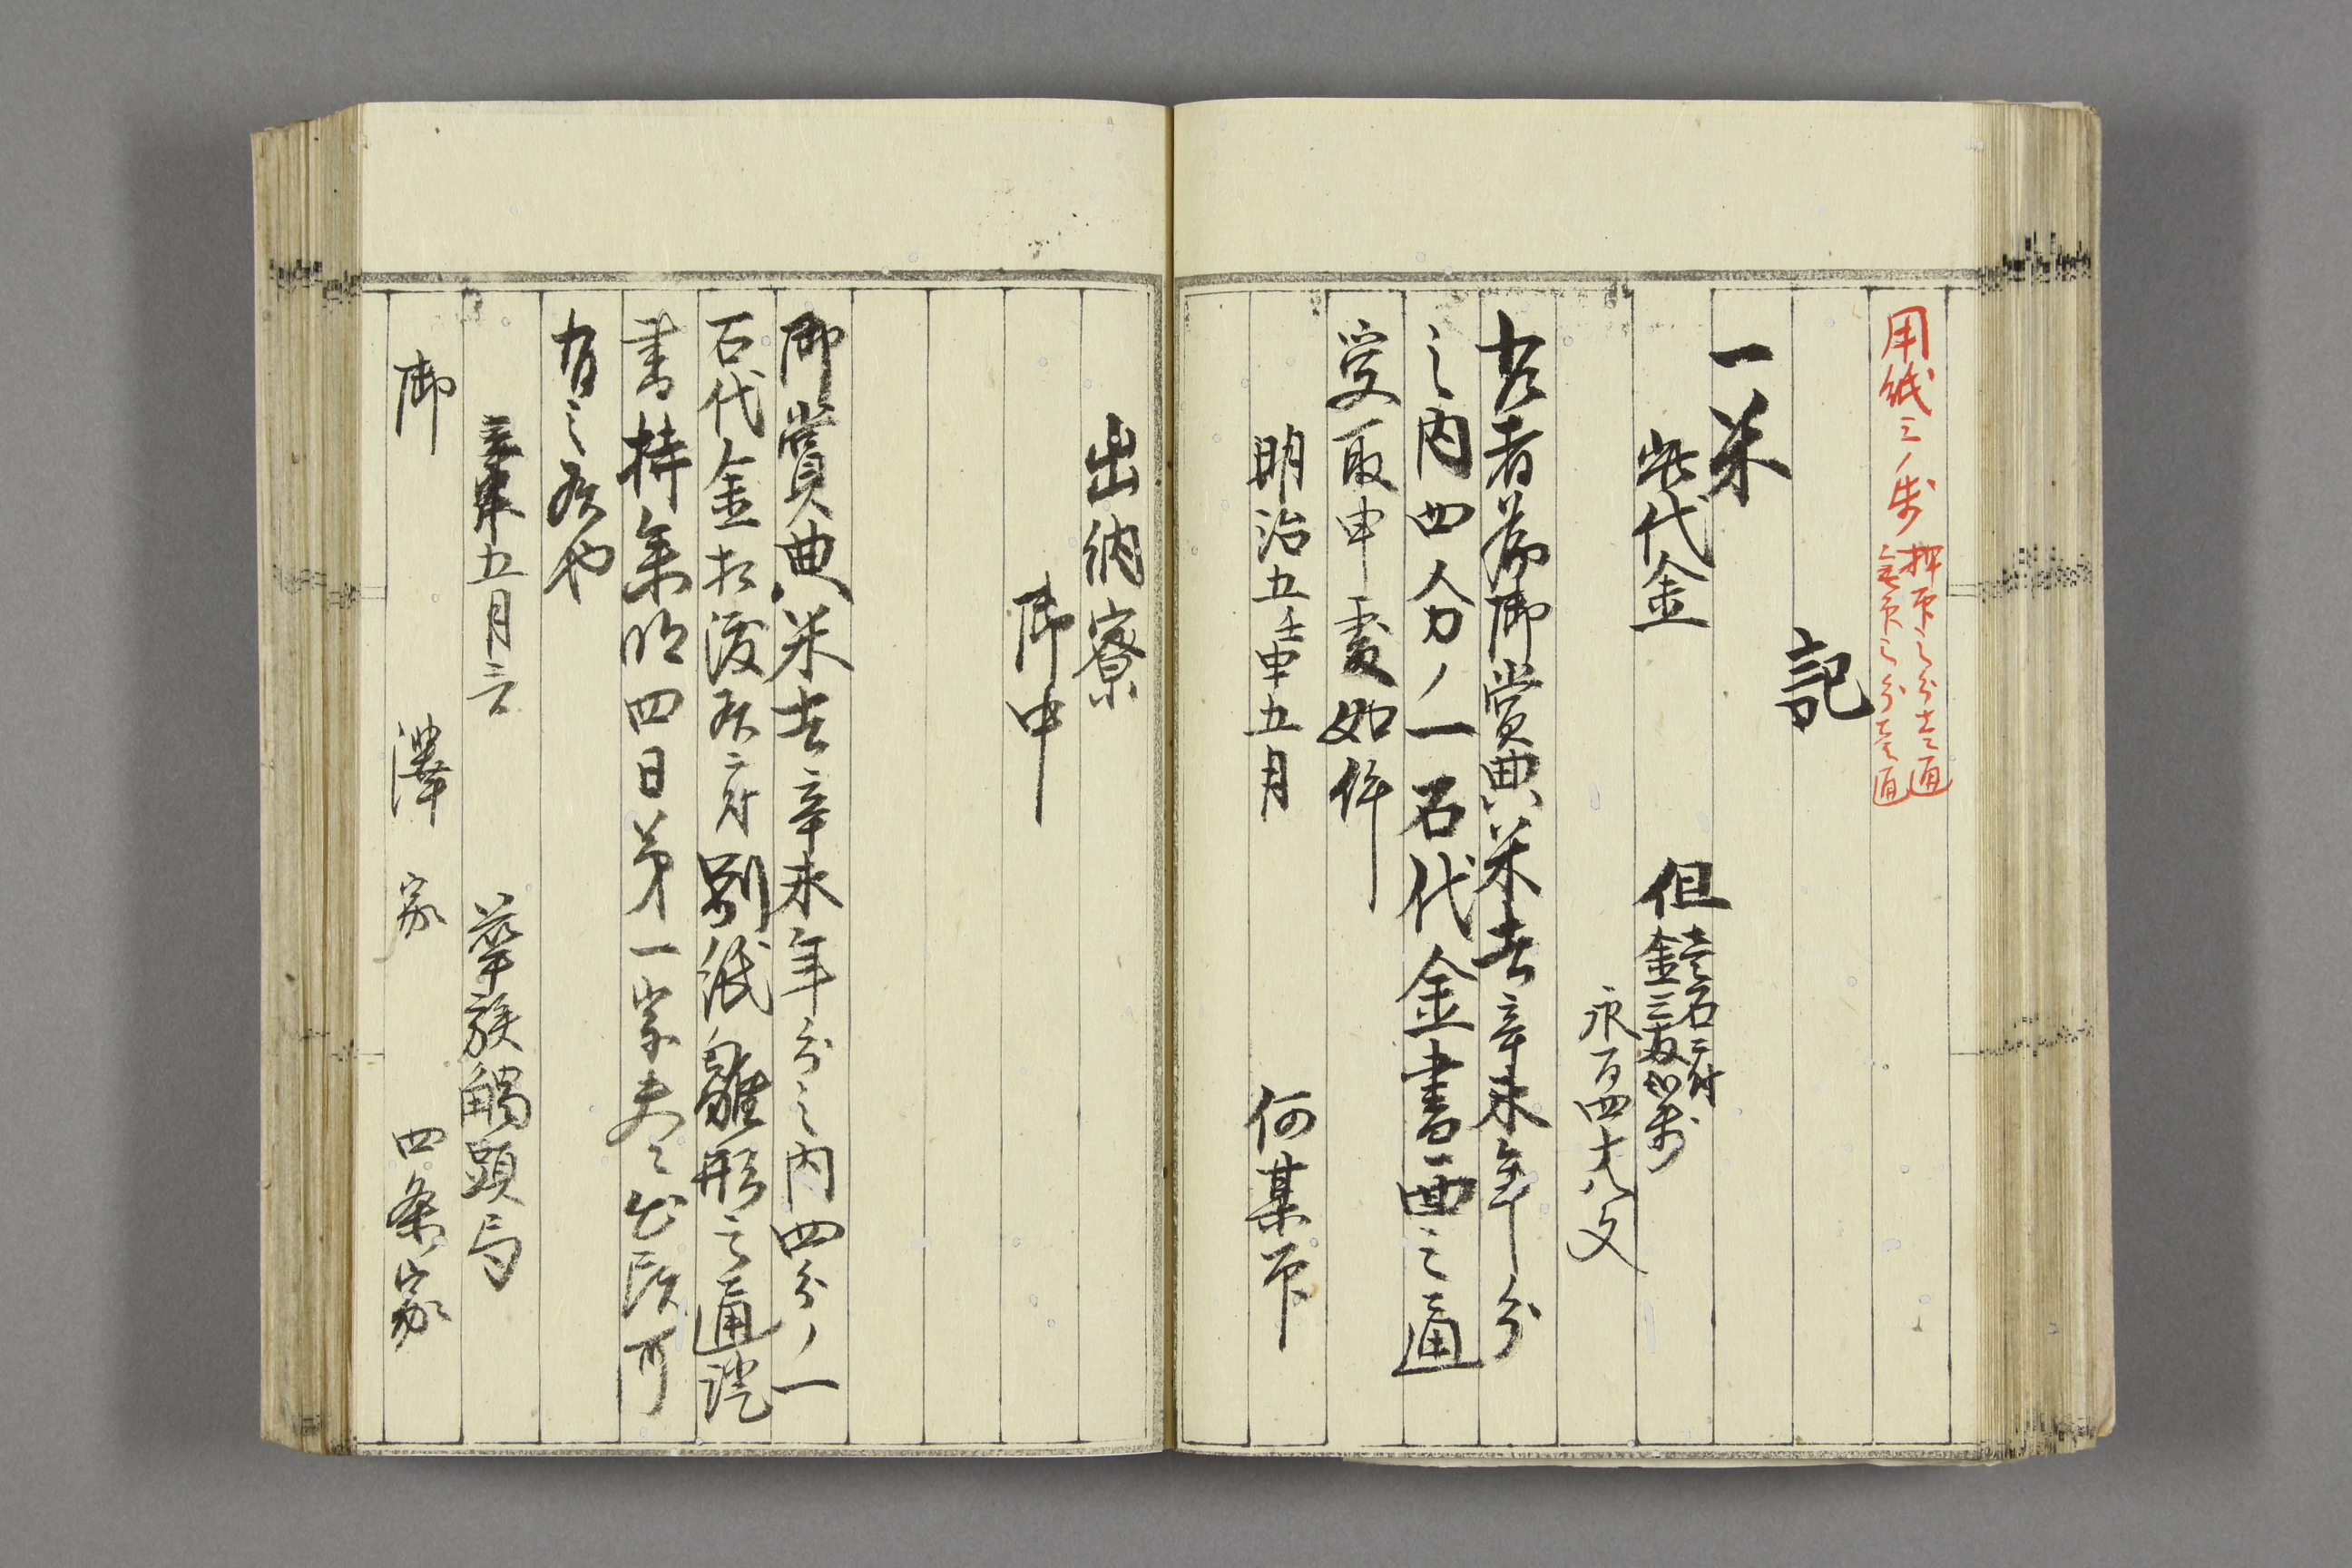 用紙三ノ歩
押印之分壱通
無印之分壱通
記
一米
此代金
但
壱石ニ付
金三両弐歩
永百四十八文
右者為御賞典米去辛未年分
之内四分ノ一石代金書面之通
受取申処如件
明治五壬申五月
何某印
出納寮
御中
御賞典米去辛未年分之内四分ノ一
石代金相渡候ニ付別紙雛形之通証
書持参明四日第一字大々出頭可
有之候也
五月三日
華族触頭局
御
澤家
四条家